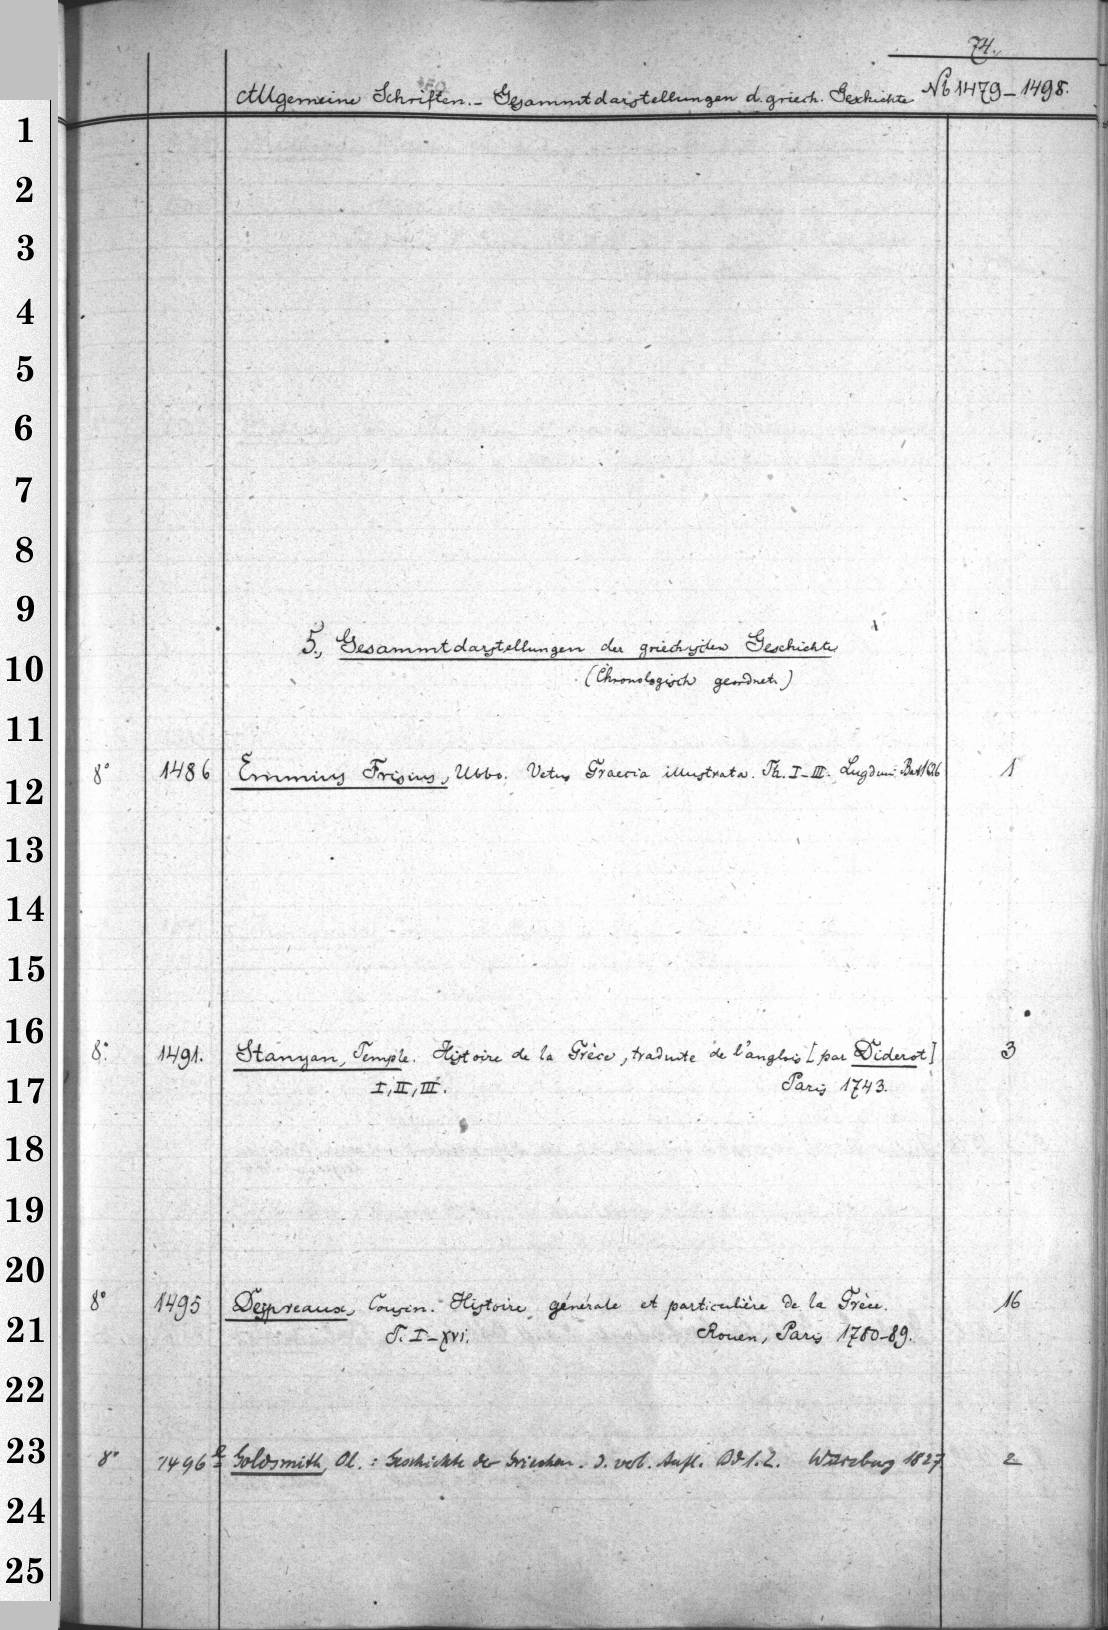 74.
Allgemeine Schriften. - Gesammtdarstellungen d. griech. Geschichte № 1479-1498.
1
2
3
4
5
6
7
8
9
5., Gesammtdarstellungen der griechischen Geschichte
10
(Chronologisch geordnet.)
11
8° 1486 Emmius Frisius, Ubbo. Vetus Graecia illustrata. Th. I-III. Lugduni. Bat 1626 1
12
13
14
15
16
8° 1491. Stanyan, Temple. Histoire de la Grèce, traduite de l'anglois [par Diderot] 3
17
I, II, III. Paris 1743.
18
19
20
8° 1495 Despreaux, Cousin. Histoire générale et particulière de la Grèce. 16
21
T. I-XVI. Rouen, Paris 1780-89.
22
23
8° 1496 a Goldsmith, Ol.: Geschichte der Griechen. 3. vb. Aufl. Bd 1.2. Würzburg 1827 2
24
25